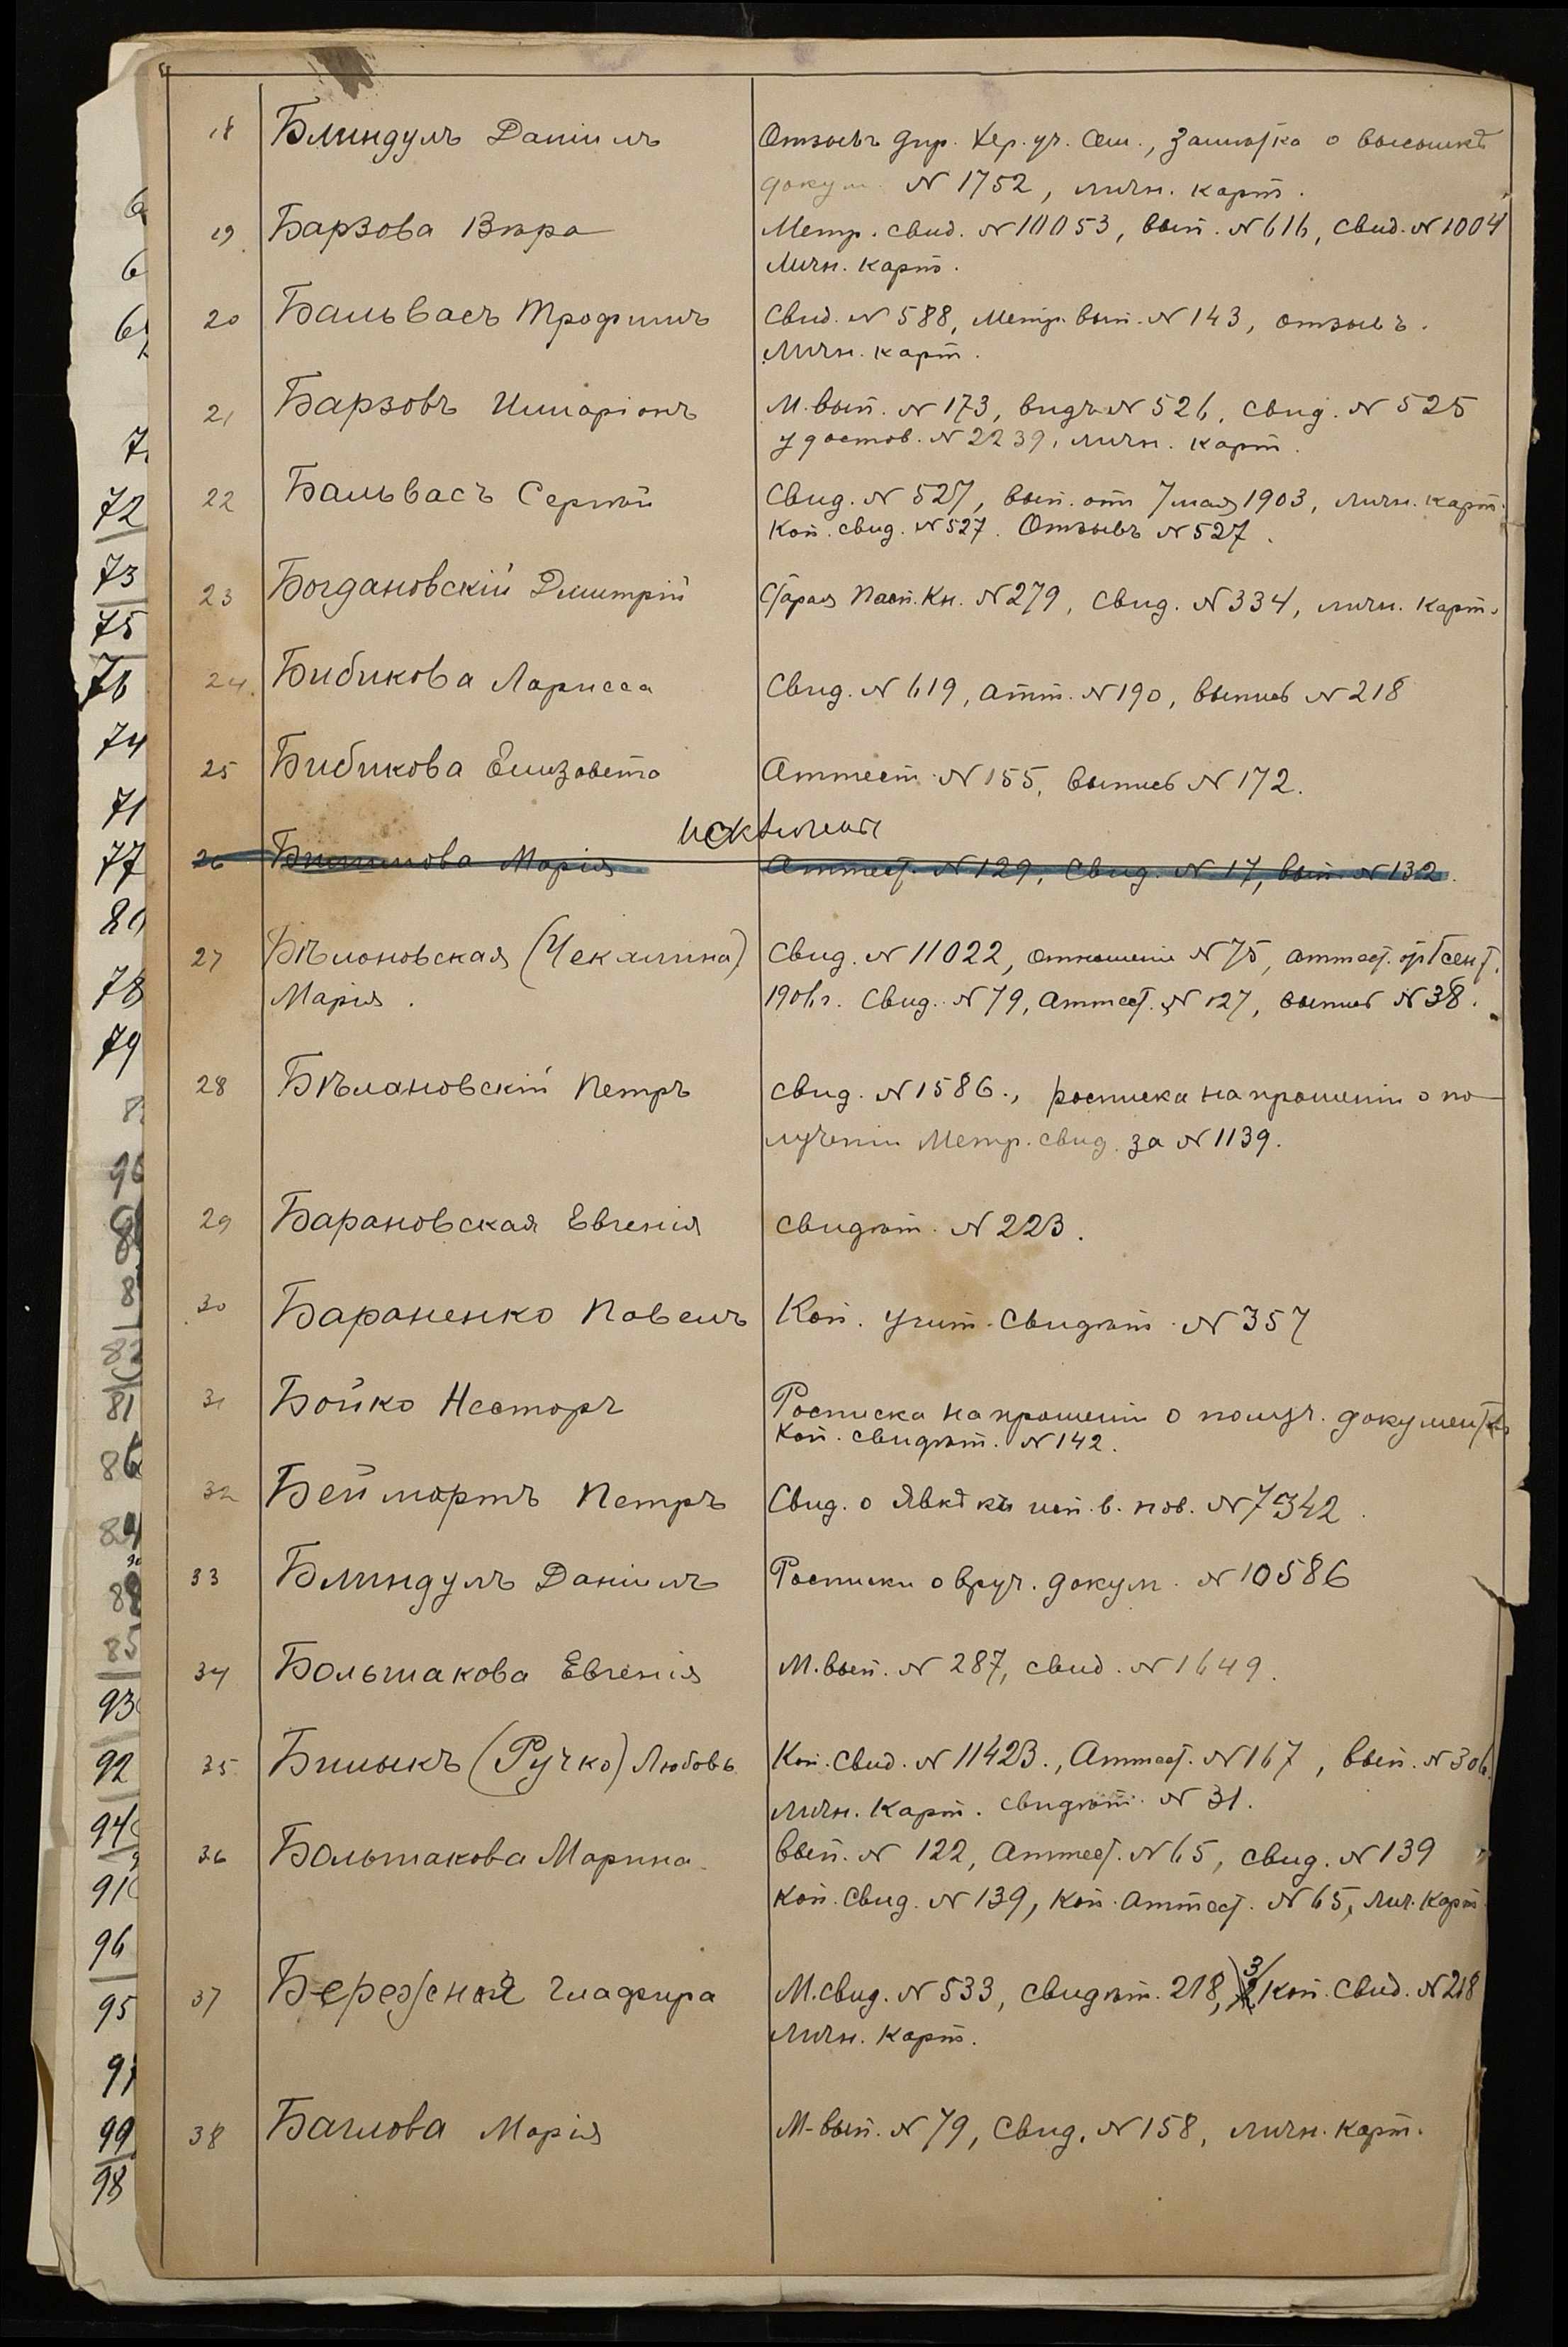 18 Блиндулъ Даніилъ Отзывъ дир. Хер. уч. сем., замѣтка о высылкѣ
докум. N 1752, личн. карт.
19 Барзова Вѣра Метр. свид. N 10053, вып. N 616, свид. N 1004
личн. карт.
20 Бальвасъ Трофимъ Свид. N 588, Метр. вып. N 143, отзывъ.
Личн. карт.
21 Барзовъ Илларіонъ М. вып. N 173, видъ N 526, свид. N 525
удостов. N 2239, личн. карт.
22 Бальвасъ Сергѣй Свид. N 527, вып. отъ 7 мая 1903, личн. карт.
Коп. свид. N 527. Отзывъ N 527.
23 Богдановскій Дмитрій Старая Пасп. Кн. N 279, свид. N 334, личн. карт.
24 Бибикова Ларисса Свид. N 619, атт. N 190, выпись N 218
25 Бибикова Елизавета Аттест. N 155, выпись N 172.
26 Марія Аттест. N 129, Свид. N 17, вып. N 132.
27 Бѣлоновская (Чекалина) Свид. N 11022, отношеніе N 75, аттест. от сент.
Марія. 1906 г. Свид. N 79, Аттест. N 127, выпись N 38.
28 Бѣлановскій Петръ свид. N 1586., росписка на прошеніи о по-
лученіи Метр. свид. за N 1139.
29 Барановская Евгенія свидѣт. N 223.
30 Бараненко Павелъ Коп. учит. Свидѣт. N 357
31 Бойко Несторъ Росписка на прошеніи о получ. документа
Коп. свидѣт. N 142.
32 Беймартъ Петръ Свид. о явкѣ къ исп. в. пов. N 7342
33 Блиндулъ Даніилъ Росписки о вруч. докум. N 10586
34 Большакова Евгенія М. вып. N 287, свид. N 1649.
35 Билыкъ (Ручко) Любовь Коп. Свид. N 11423., Аттест. N 167, вып. N 306.
личн. Карт. свидѣт. N 31.
36 Большакова Марина Вып. N 122, Аттест. N 65, свид. N 139
Коп. свид. N 139, Коп. Аттест. N 65, лич. карт.
37 Бережная Глафира М. свид. N 533, свидѣт. 218, 3 Коп. Свид. N 218
личн. карт.
38 Баглова Марія М-вып. N 79, Свид. N 158, личн. карт.
72
73
75
76
74
71
77
78
79
81
85
93
92
96
95
99
98